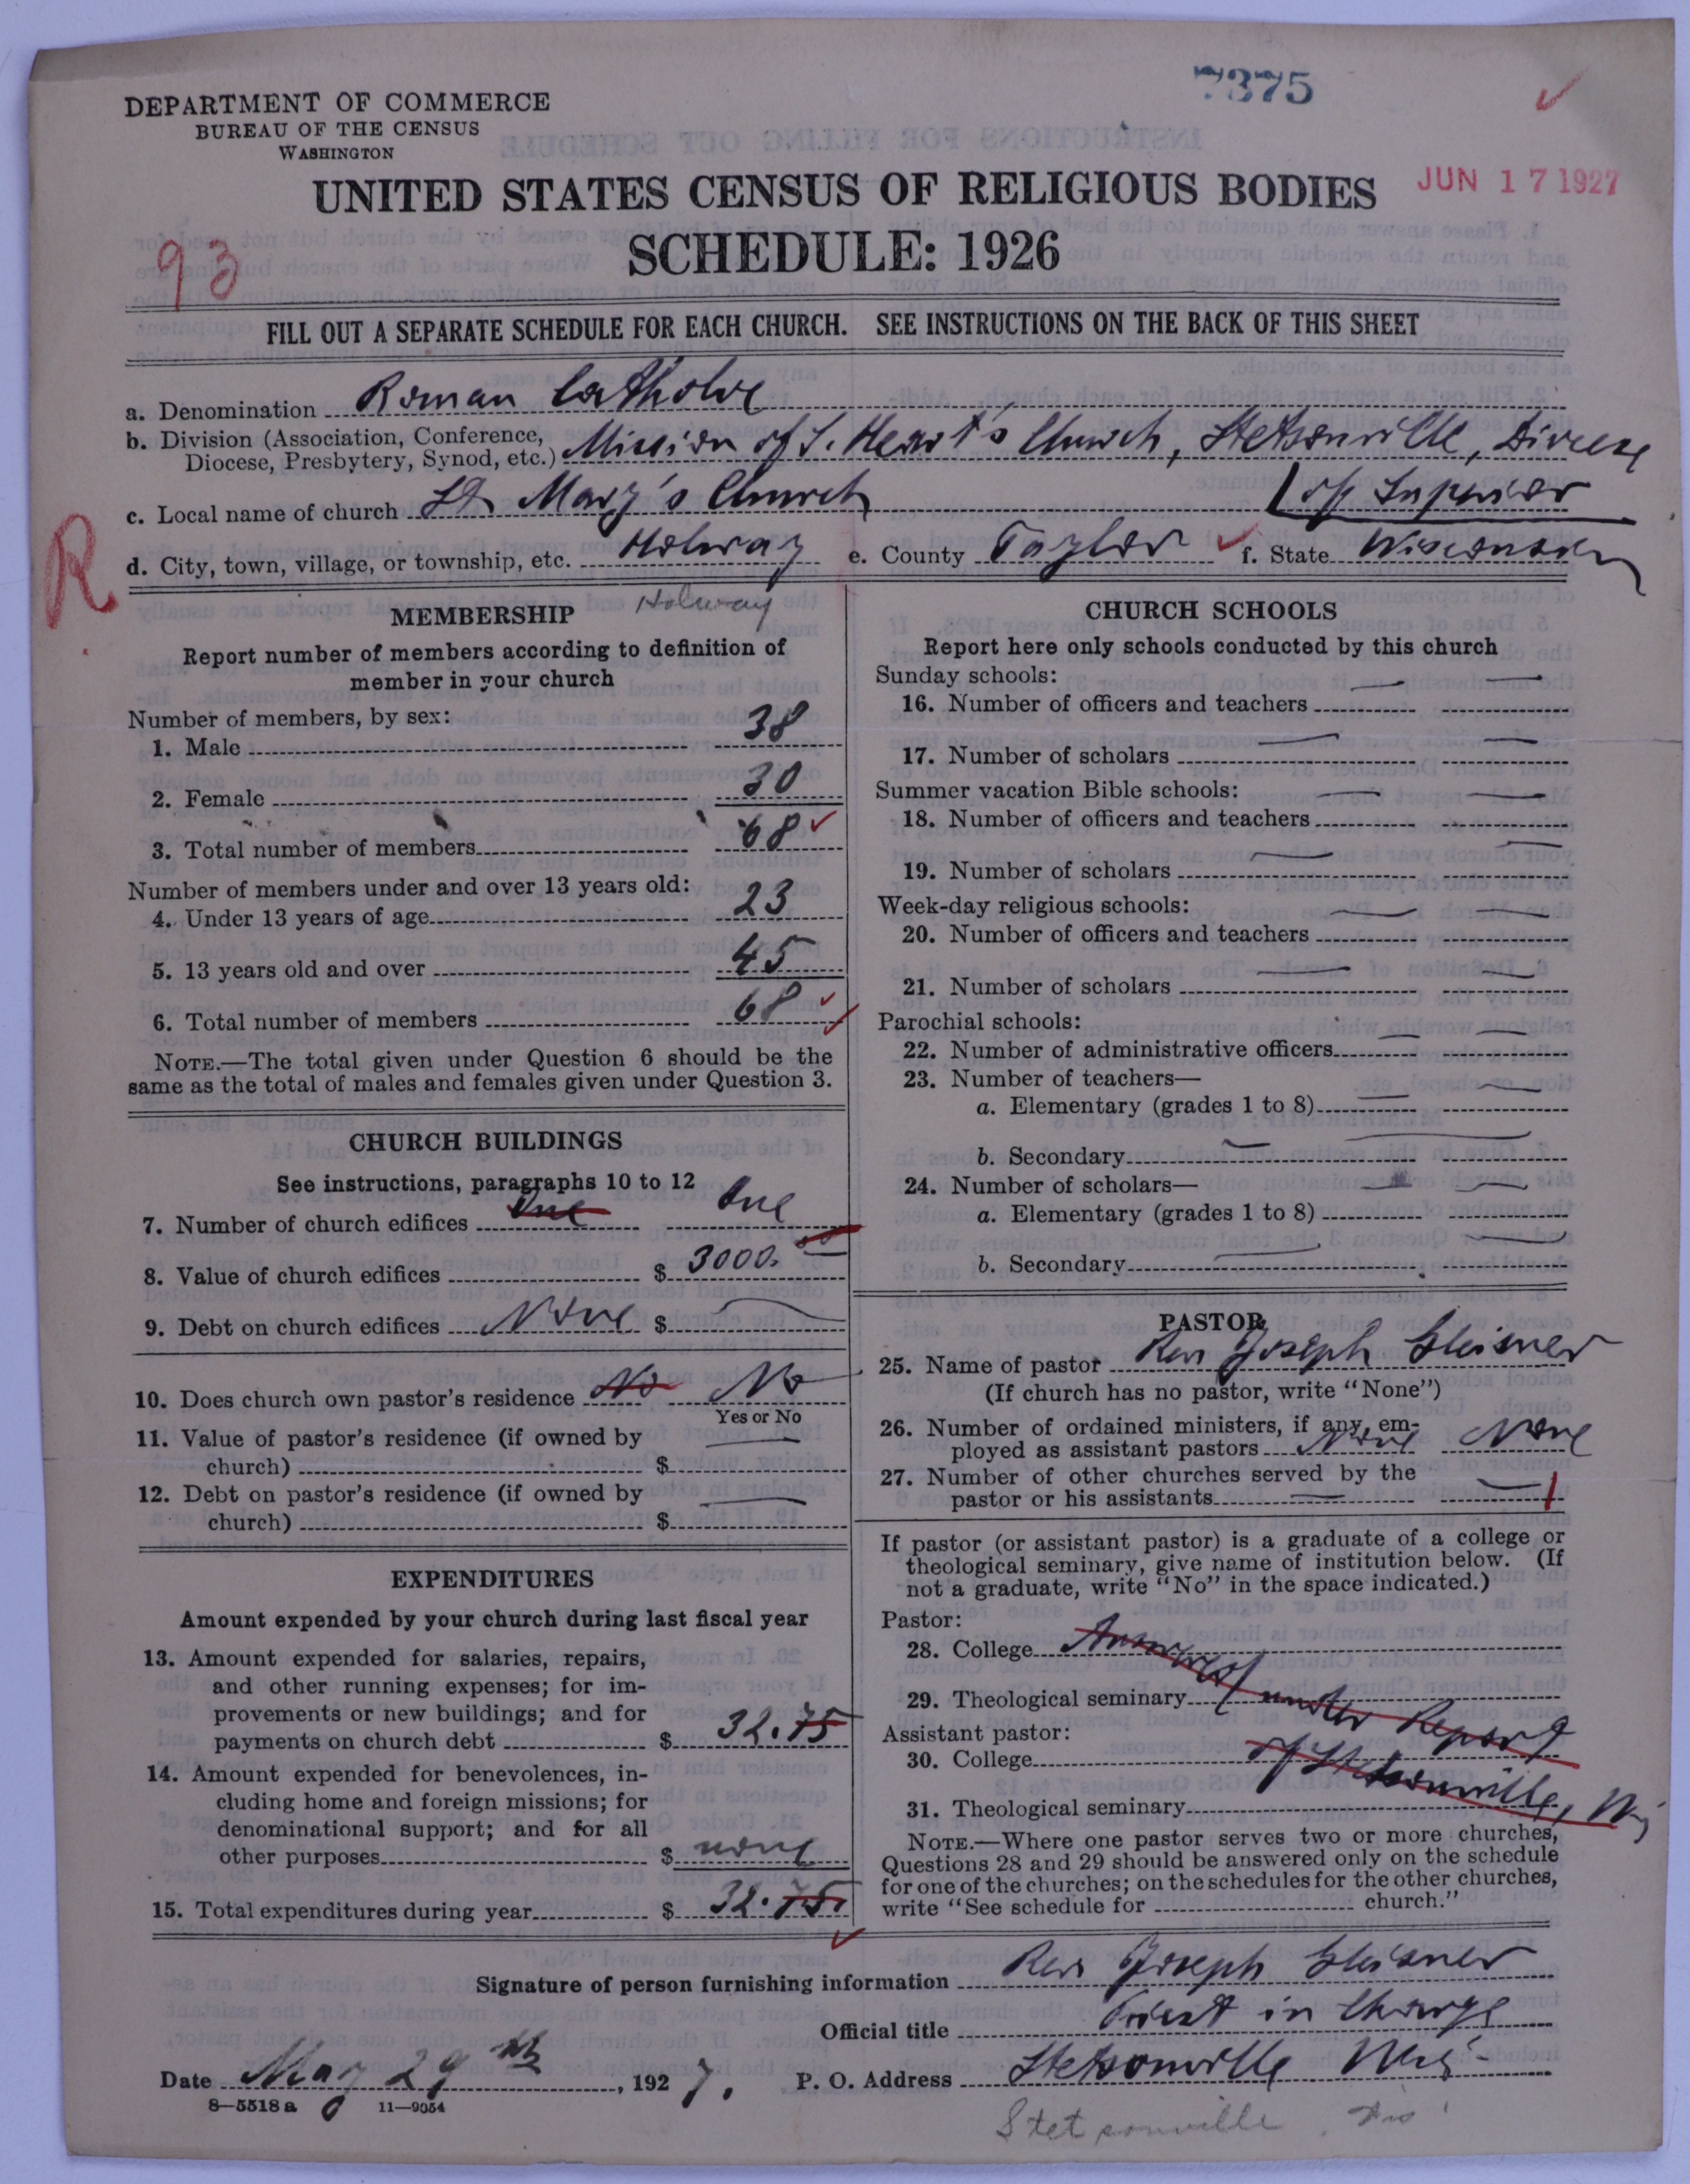 7375
DEPARTMENT OF COMMERCE
BUREAU OF THE CENSUS
WASHINGTON
JUN 17 1927
UNITED STATES CENSUS OF RELIGIOUS BODIES
SCHEDULE: 1926
93
FILL OUT A SEPARATE SCHEDULE FOR EACH CHURCH. SEE INSTRUCTIONS ON THE BACK OF THIS SHEET
a. Denomination Roman Catholic
b. Division (Association, Conference, Diocese, Presbytery, Synod, etc.) Mission of S. Heart's Church, Stetsonville, Diocese
of Superior
c. Local name of church St Mary's Church
R
d. City, town, village, or township, etc. Holway e. County Taylor f. State Wisconsin
Holway
MEMBERSHIP
Report number of members according to definition of
member in your church
Number of members, by sex:
1. Male 38
2. Female 30
3. Total number of members 68
Number of members under and over 13 years old:
4. Under 13 years of age 23
5. 13 years old and over 45
6. Total number of members 68
NOTE.—The total given under Question 6 should be the
same as the total of males and females given under Question 3.
CHURCH BUILDINGS
See instructions, paragraphs 10 to 12
7. Number of church edifices One One
8. Value of church edifices $ 3000.00
9. Debt on church edifices None $
10. Does church own pastor's residence No No
Yes or No
11. Value of pastor's residence (if owned by
church) $
12. Debt on pastor's residence (if owned by
church) $
EXPENDITURES
Amount expended by your church during last fiscal year
13. Amount expended for salaries, repairs,
and other running expenses; for im-
provements or new buildings; and for
payments on church debt $ 32.75
14. Amount expended for benevolences, in-
cluding home and foreign missions; for
denominational support; and for all
other purposes $ none
15. Total expenditures during year $ 32.75
CHURCH SCHOOLS
Report here only schools conducted by this church
Sunday schools:
16. Number of officers and teachers
17. Number of scholars
Summer vacation Bible schools:
18. Number of officers and teachers
19. Number of scholars
Week-day religious schools:
20. Number of officers and teachers
21. Number of scholars
Parochial schools:
22. Number of administrative officers
23. Number of teachers—
a. Elementary (grades 1 to 8)
b. Secondary
24. Number of scholars—
a. Elementary (grades 1 to 8)
b. Secondary
PASTOR
25. Name of pastor Rev Joseph Gleisner
(If church has no pastor, write "None")
26. Number of ordained ministers, if any, em-
ployed as assistant pastors None None
27. Number of other churches served by the
pastor or his assistants 1
If pastor (or assistant pastor) is a graduate of a college or
theological seminary, give name of institution below. (If
not a graduate, write "No" in the space indicated.)
Pastor:
28. College Answered
29. Theological seminary under Report
Assistant pastor:
30. College of Stetsonville, Wis
31. Theological seminary
NOTE.—Where one pastor serves two or more churches,
Questions 28 and 29 should be answered only on the schedule
for one of the churches; on the schedules for the other churches,
write "See schedule for church."
Signature of person furnishing information Rev Joseph Gleisner
Official title Priest in Charge
Date May 29th, 1927. P. O. Address Stetsonville Wis
8—5518 a 11—9054
Stetsonville, Wis